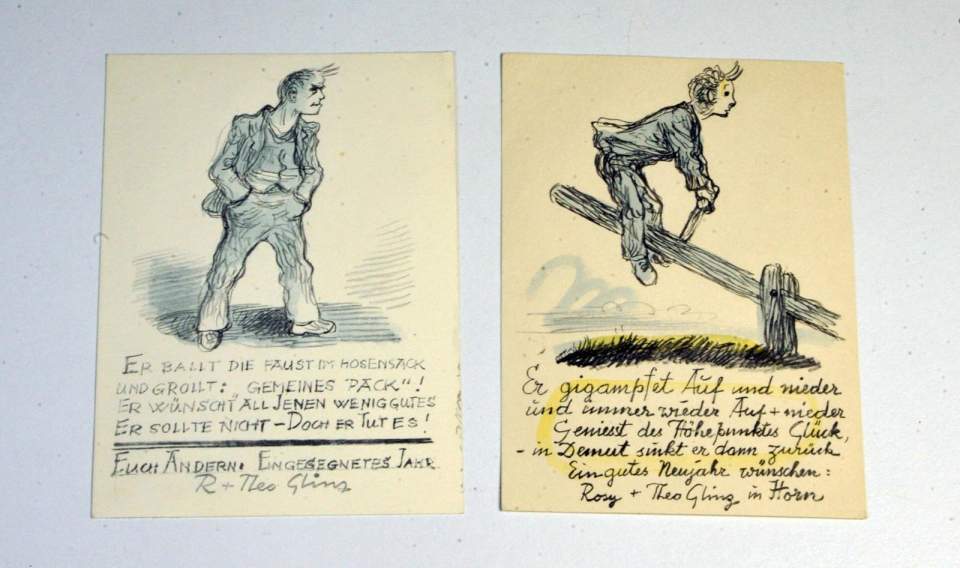 ER BALLT DIE FAUST IM HOSENSACK
UND GROLLT: „GEMEINES PACK"!
ER WÜNSCHT ALL JENEN WENIG GUTES
ER SOLLTE NICHT – DOCH ER TUT ES!
EUCH ANDERN: EIN GESEGNETES JAHR
R + Theo Glinz
Er gigampfet Auf und nieder
und immer wieder Auf + nieder
Geniesst des Höhepunktes Glück,
– in Demut sinkt er dann zurück
Ein gutes Neujahr wünschen:
Rosy + Theo Glinz in Horn